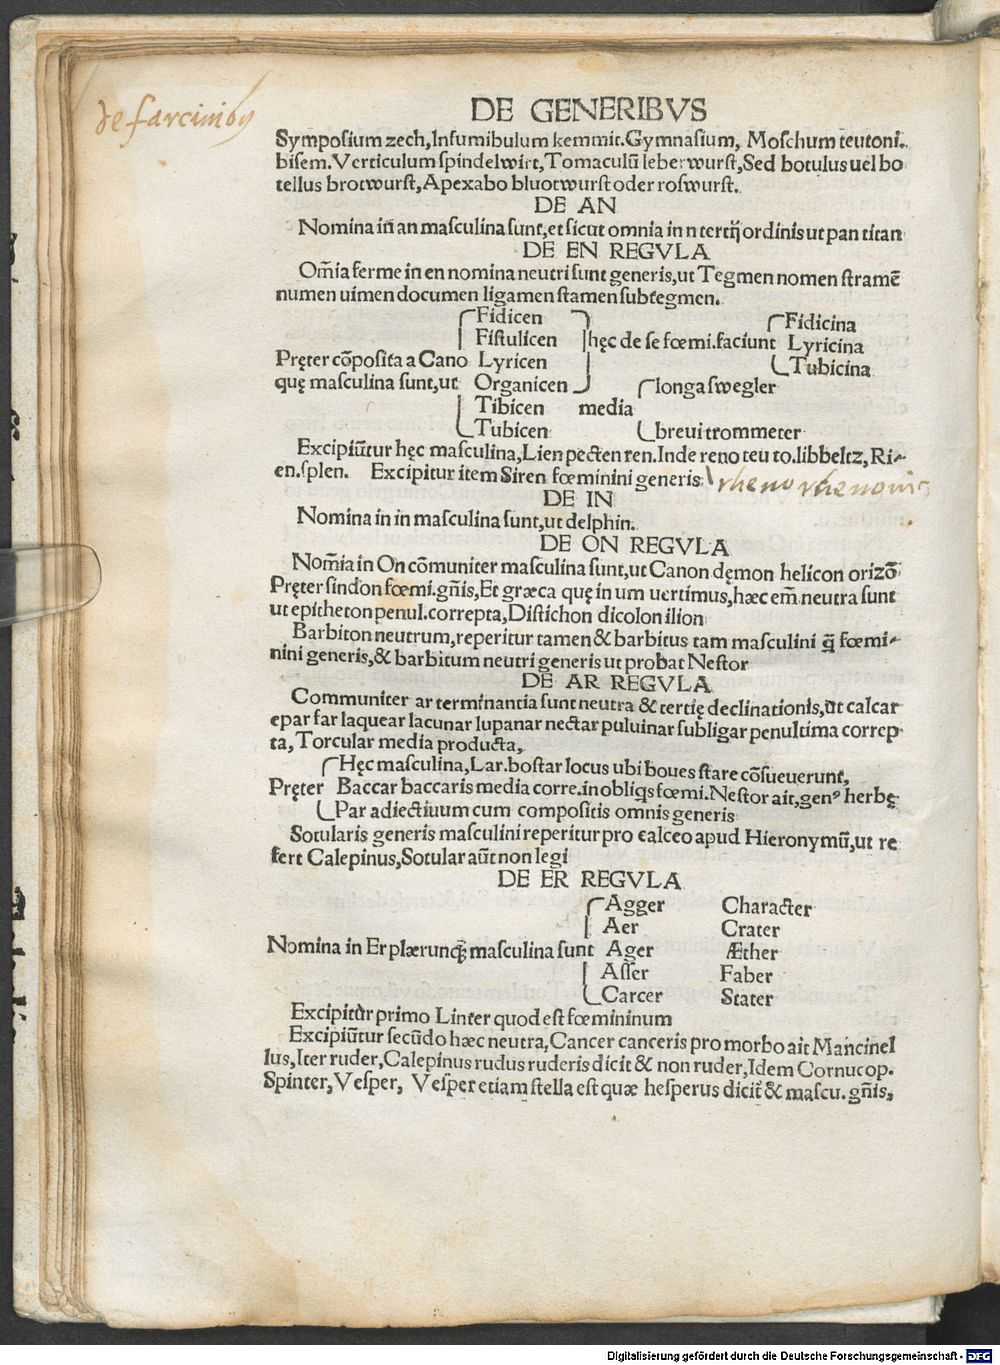 de farcimibꝰ
DE GENERIBVS
Symposium zech,Infumibulum kemmit.Gymnasium, Moschum teutoni.
bisem.Verticulum spindelwirt,Tomaculū leberwurst,Sed botulus uel bo
tellus brotwurst,Apexabo bluotwurst oder roswurst.
DE AN
Nomina in an masculina sunt,et sicut omnia in n tertij ordinis ut pan titan
DE EN REGVLA
Om̄ia ferme in en nomina neutri sunt generis,ut Tegmen nomen stramē
numen uimen documen ligamen stamen subtegmen.
Pręter cōposita a Cano
quę masculina sunt,ut
Fidicen
Fistulicen
Lyricen
Organicen
Tibicen
Tubicen
hęc de se fœmi.faciunt
Fidicina
Lyricina
Tubicina
media
longa swegler
breui trommeter
Excipiūtur hęc masculina,Lien pecten ren.Inde reno teuto.libbeltz,Ri-
en.splen. Excipitur item Siren fœminini generis
rheno rhenonis
DE IN
Nomina in in masculina sunt,ut delphin.
DE ON REGVLA
Nom̄ia in On cōmuniter masculina sunt,ut Canon dęmon helicon orizō
Pręter sindon fœmi.gn̄is,Et græca quę in um uertimus,hæc em̄ neutra sunt
ut epitheton penul.correpta,Distichon dicolon ilion
Barbiton neutrum,reperitur tamen & barbitus tam masculini q̄ fœmi-
nini generis,& barbitum neutri generis ut probat Nestor
DE AR REGVLA
Communiter ar terminantia sunt neutra & tertię declinationis,ut calcar
epar far laquear lacunar lupanar nectar puluinar subligar penultima correp
ta,Torcular media producta,
Pręter
Hęc masculina,Lar.bostar locus ubi boues stare cōsueuerunt,
Baccar baccaris media corre.in obliq̄s fœmi.Nestor ait,genꝰ herbę
Par adiectiuum cum compositis omnis generis
Sotularis generis masculini reperitur pro calceo apud Hieronymū,ut re
fert Calepinus,Sotular aūt non legi
DE ER REGVLA
Nomina in Er plærunq̄ masculina sunt
Agger Character
Aer Crater
Ager Æther
Asser Faber
Carcer Stater
Excipitur primo Linter quod est fœmininum
Excipiūtur secūdo hæc neutra,Cancer canceris pro morbo ait Mancinel
lus,Iter ruder,Calepinus rudus ruderis dicit & non ruder,Idem Cornucop.
Spinter,Vesper, Vesper etiam stella est quæ hesperus dicit̄ & mascu.gn̄is,
Digitalisierung gefördert durch die Deutsche Forschungsgemeinschaft - DFG